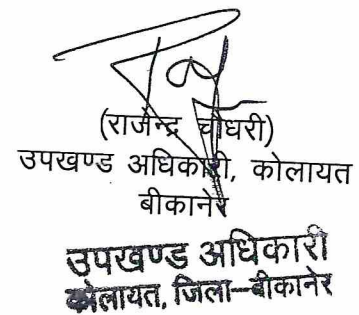 (राजेन्द्र चौधरी)
उपखण्ड अधिकारी, कोलायत
बीकानेर
उपखण्ड अधिकारी
कोलायत, जिला-बीकानेर